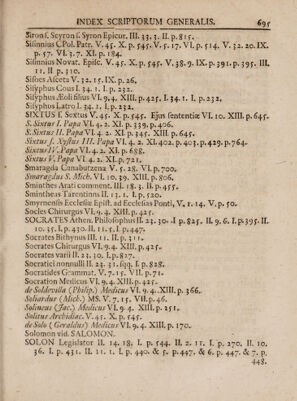 INDEX SCRIPTORUM GENERALIS. 695
Siron s. Scyron s. Syron Epicur. III. 33. 3. II. p. 815.
Sisinnius CPol. Patr. V. 45. X. p. 545. V. 5. 17. VI. p. 514. V. 32. 20. IX.
p. 57. VI. 3. 7. XI. p. 184.
Sisinnius Novat. Episc. V. 45. X. p. 545. V. 38. 9. IX. p. 391. p. 395. III.
11. II p. 310.
Sisoes Asceta V. 32. 15. IX. p. 26.
Sisyphus Cous I. 34. 1. I. p. 232.
Sisyphus Æoli filius VI. 9. 4. XIII. p. 425. I. 34. 1. I. p. 232.
Sisyphus Latro I. 34. 1. I. p. 232.
SIXTUS f. Sextus V. 45. X. p. 545. Ejus sententiæ VI. 10. XIII. p. 645.
S. Sixtus I. Papa VI. 4. 2. XI. p. 339. p. 406.
S. Sixtus II. Papa VI. 4. 2. XI. p. 345. XIII. p. 645.
Sixtus s. Xystus III. Papa VI. 4. 2. XI. 402. p. 403. p. 429. p. 764.
Sixtus IV. Papa VI. 4. 2. XI. p. 688.
Sixtus V. Papa VI. 4. 2. XI. p. 721.
Smaragda Canabutzena V. 5. 28. VI. p. 700.
Smaragdus S. Mich. VI. 10. 39. XIII. p. 806.
Sminthes Arati comment. III. 18. 3. II. p. 455.
Smintheas Tarentinus II. 13. 1. I. p. 520.
Smyrnensis Ecclesiæ Epist. ad Ecclesias Ponti, V. 1. 14. V. p. 50.
Socles Chirurgus VI. 9. 4. XIII. p. 425.
SOCRATES Athen. Philosophus II. 23. 30. I p. 825. II. 9. 6. I. p. 395. II.
10. 35. I. p. 430. II. 11. 5. I. p. 447.
Socrates Bithynus III. 11. II. p. 311.
Socrates Chirurgus VI. 9. 4. XIII. p. 425.
Socrates varii II. 23. 30. I. p. 827.
Socratici nonnulli II. 23. 31. sqq. I. p. 828.
Socratides Grammat. V. 7. 15. VII. p. 71.
Socration Medicus VI. 9. 4. XIII. p. 425.
de Soldevolla (Philip.) Medicus VI. 9. 4. XIII. p. 366.
Soliardus (Mich.) MS. V. 7. 15. VII. p. 46.
Solineus (Jac.) Medicus VI. 9. 4. XIII. p. 251.
Solitus Archidiac. V. 45. X. p. 545.
de Solo (Geraldus) Medicus VI. 9. 4. XIII. p. 170.
Solomon vid. SALOMON.
SOLON Legislator II. 14. 18. I. p. 544. II. 2. 11. I. p. 270. II. 10.
36. I. p. 431. II. 11. 1. I. p. 440. & 5. p. 447. & 6. p. 447. & 7. p.
448.